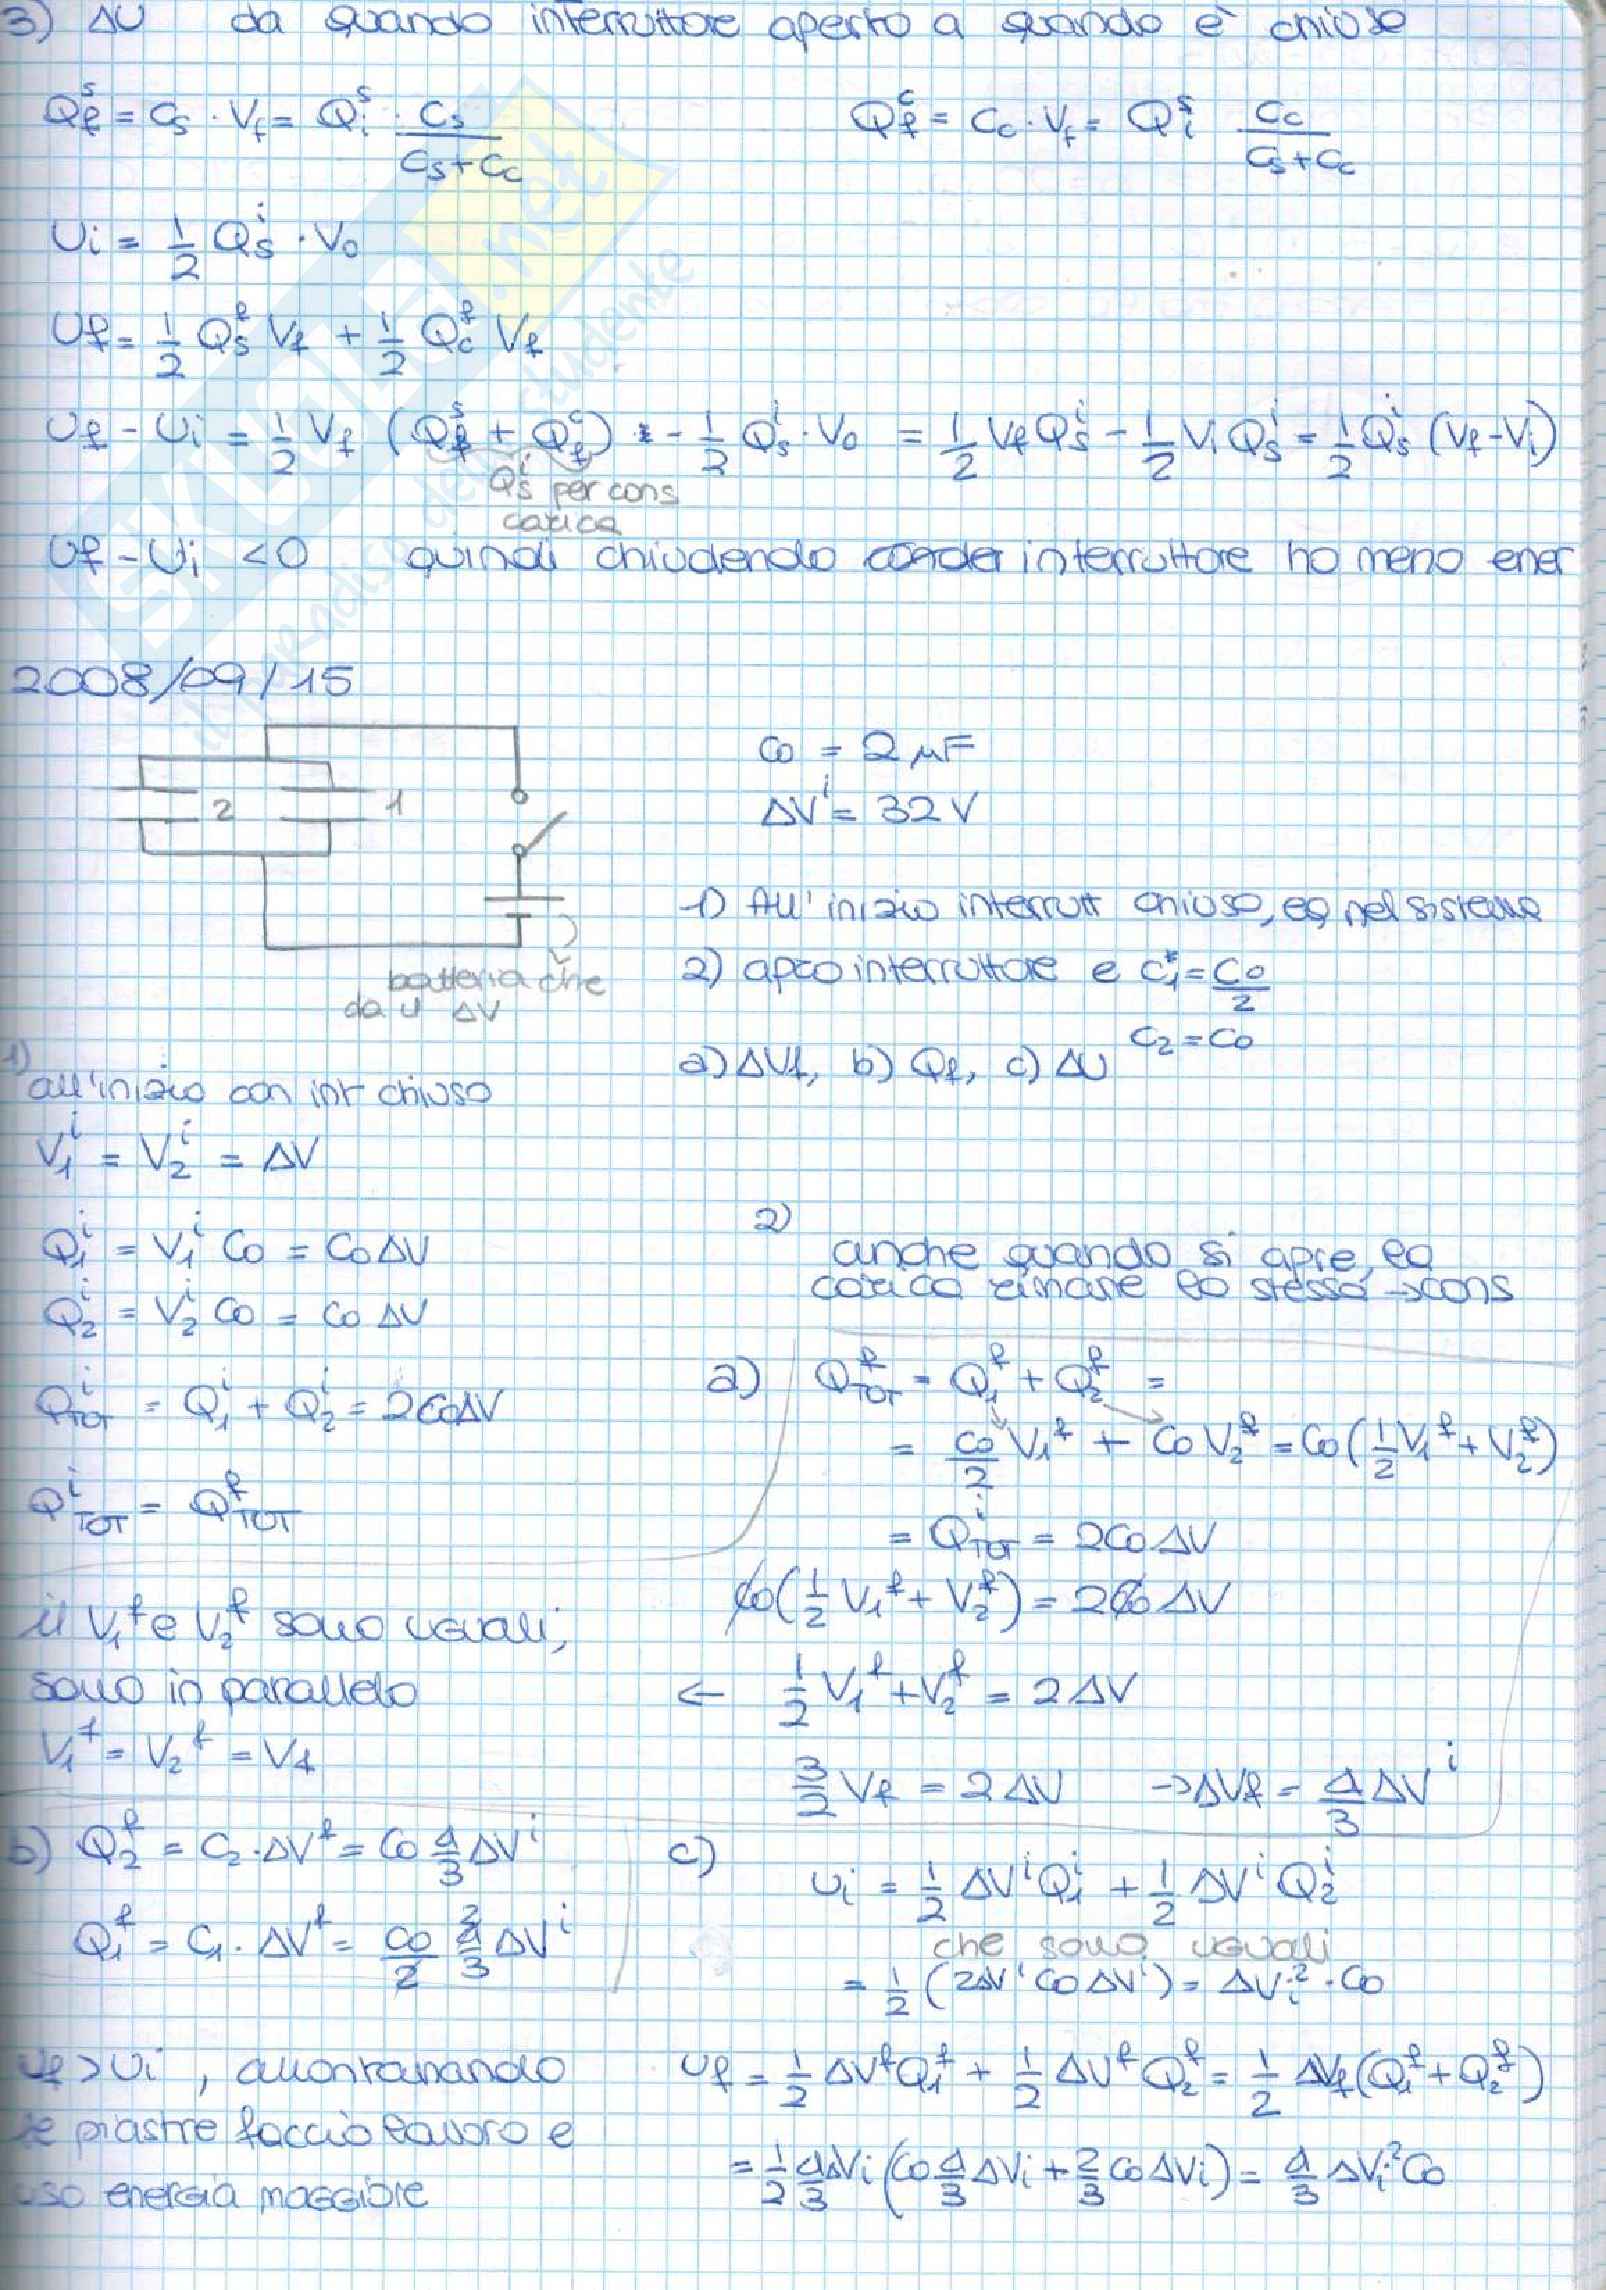 3) ΔU da quando interruttore aperto a quando è chiuso
Q_f^s = C_s · V_f = Q_i^s · C_s/(C_s+C_c)
Q_f^c = C_c · V_f = Q_i^s C_c/(C_s+C_c)
U_i = 1/2 Q_s^i · V_0
U_f = 1/2 Q_s^f V_f + 1/2 Q_c^f V_f
U_f - U_i = 1/2 V_f (Q_f^s + Q_f^c) - 1/2 Q_s^i · V_0 = 1/2 V_f Q_s^i - 1/2 V_i Q_s^i = 1/2 Q_s^i (V_f - V_i)
Q_s^i per cons
carica
U_f - U_i < 0 quindi chiudendo interruttore ho meno ener
2008/09/15
2 1
batteria che
da il ΔV
C0 = 2 μF
ΔV^i = 32 V
1) All'inizio interrutt chiuso, eq nel sistema
2) apro interruttore e C_1^* = C0/2
C_2 = C0
a) ΔV_f, b) Q_f, c) ΔU
1)
all'inizio con int chiuso
V_1^i = V_2^i = ΔV
Q_1^i = V_1^i C0 = C0 ΔV
Q_2^i = V_2^i C0 = C0 ΔV
Q_TOT^i = Q_1^i + Q_2^i = 2C0ΔV
Q_TOT^i = Q_TOT^f
2)
anche quando si apre, la
carica rimane la stessa → cons
a) Q_TOT^f = Q_1^f + Q_2^f =
= C0/2 V_1^f + C0 V_2^f = C0 (1/2 V_1^f + V_2^f)
= Q_TOT^i = 2C0 ΔV
C0 (1/2 V_1^f + V_2^f) = 2C0 ΔV
← 1/2 V_1^f + V_2^f = 2 ΔV
il V_1^f e V_2^f sono uguali,
sono in parallelo
V_1^f = V_2^f = V_f
3/2 V_f = 2 ΔV → ΔV_f = 4/3 ΔV^i
b) Q_2^f = C_2 · ΔV^f = C0 4/3 ΔV^i
Q_1^f = C_1 · ΔV^f = C0/2 4/3 ΔV^i
2
c)
U_i = 1/2 ΔV^i Q_1^i + 1/2 ΔV^i Q_2^i
che sono uguali
= 1/2 (2ΔV^i C0 ΔV^i) = ΔV_i^2 · C0
U_f = 1/2 ΔV^f Q_1^f + 1/2 ΔV^f Q_2^f = 1/2 ΔV_f (Q_1^f + Q_2^f)
= 1/2 4/3 ΔV_i (C0 4/3 ΔV_i + 2/3 C0 ΔV_i) = 4/3 ΔV_i^2 C0
U_f > U_i, allontanando
le piastre faccio lavoro e
uso energia maggiore
SKUOLA.net
il paradiso dello studente